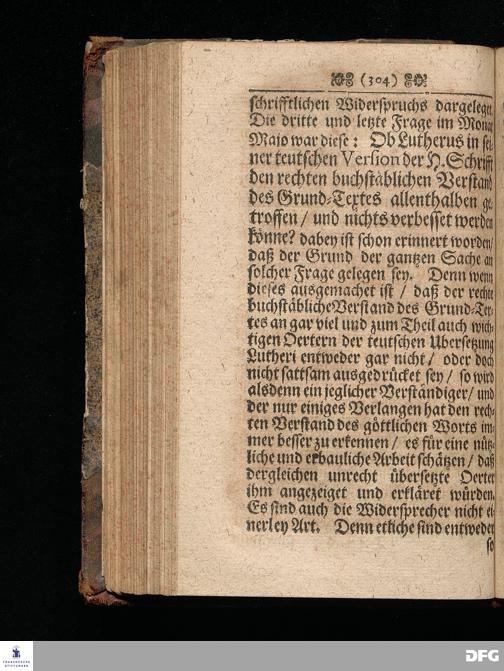 (304)
schrifftlichen Widerspruchs dargeleget.
Die dritte und letzte Frage im Monat
Majo war diese: Ob Lutherus in sei-
ner teutschen Version der H. Schrifft
den rechten buchstäblichen Verstand
des Grund-Textes allenthalben ge-
troffen / und nichts verbesset werden
könne? dabey ist schon erinnert worden /
daß der Grund der gantzen Sache an
solcher Frage gelegen sey. Denn wenn
dieses ausgemachet ist / daß der rechte
buchstäbliche Verstand des Grund-Tex-
tes an gar viel und zum Theil auch wich-
tigen Oertern der teutschen Ubersetzung
Lutheri entweder gar nicht / oder doch
nicht sattsam ausgedrücket sey / so wird
alsdenn ein jeglicher Verständiger / und
der nur einiges Verlangen hat den rech-
ten Verstand des göttlichen Worts im-
mer besser zu erkennen / es für eine nütz-
liche und erbauliche Arbeit schätzen / daß
dergleichen unrecht übersetzte Oerter
ihm angezeiget und erkläret würden.
Es sind auch die Widersprecher nicht ei-
nerley Art. Denn etliche sind entweder
so
FRANCKESCHE
STIFTUNGEN
DFG